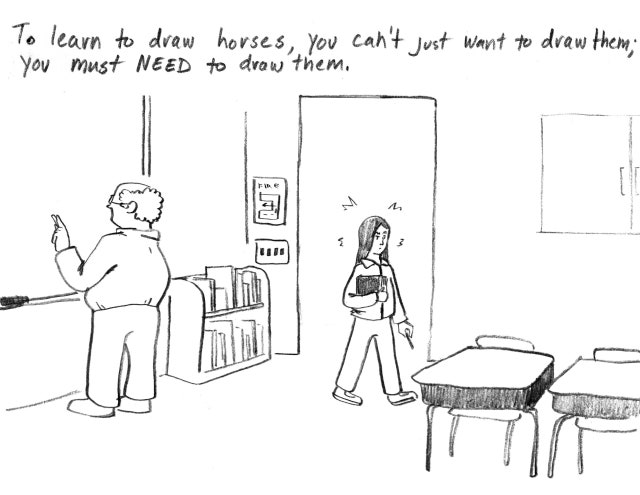 To learn to draw horses, you can't just want to draw them;
you must NEED to draw them.
FIRE